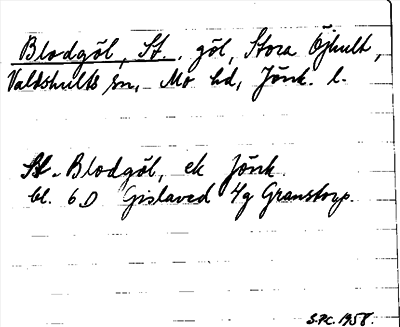 Blodgöl, St., göl, Stora Öjhult,
Valdshults sn, Mo hd, Jönk. l.
St. Blodgöl, ek Jönk.
bl. 6D Gislaved 4g Granstorp.
S.P.C. 1958.